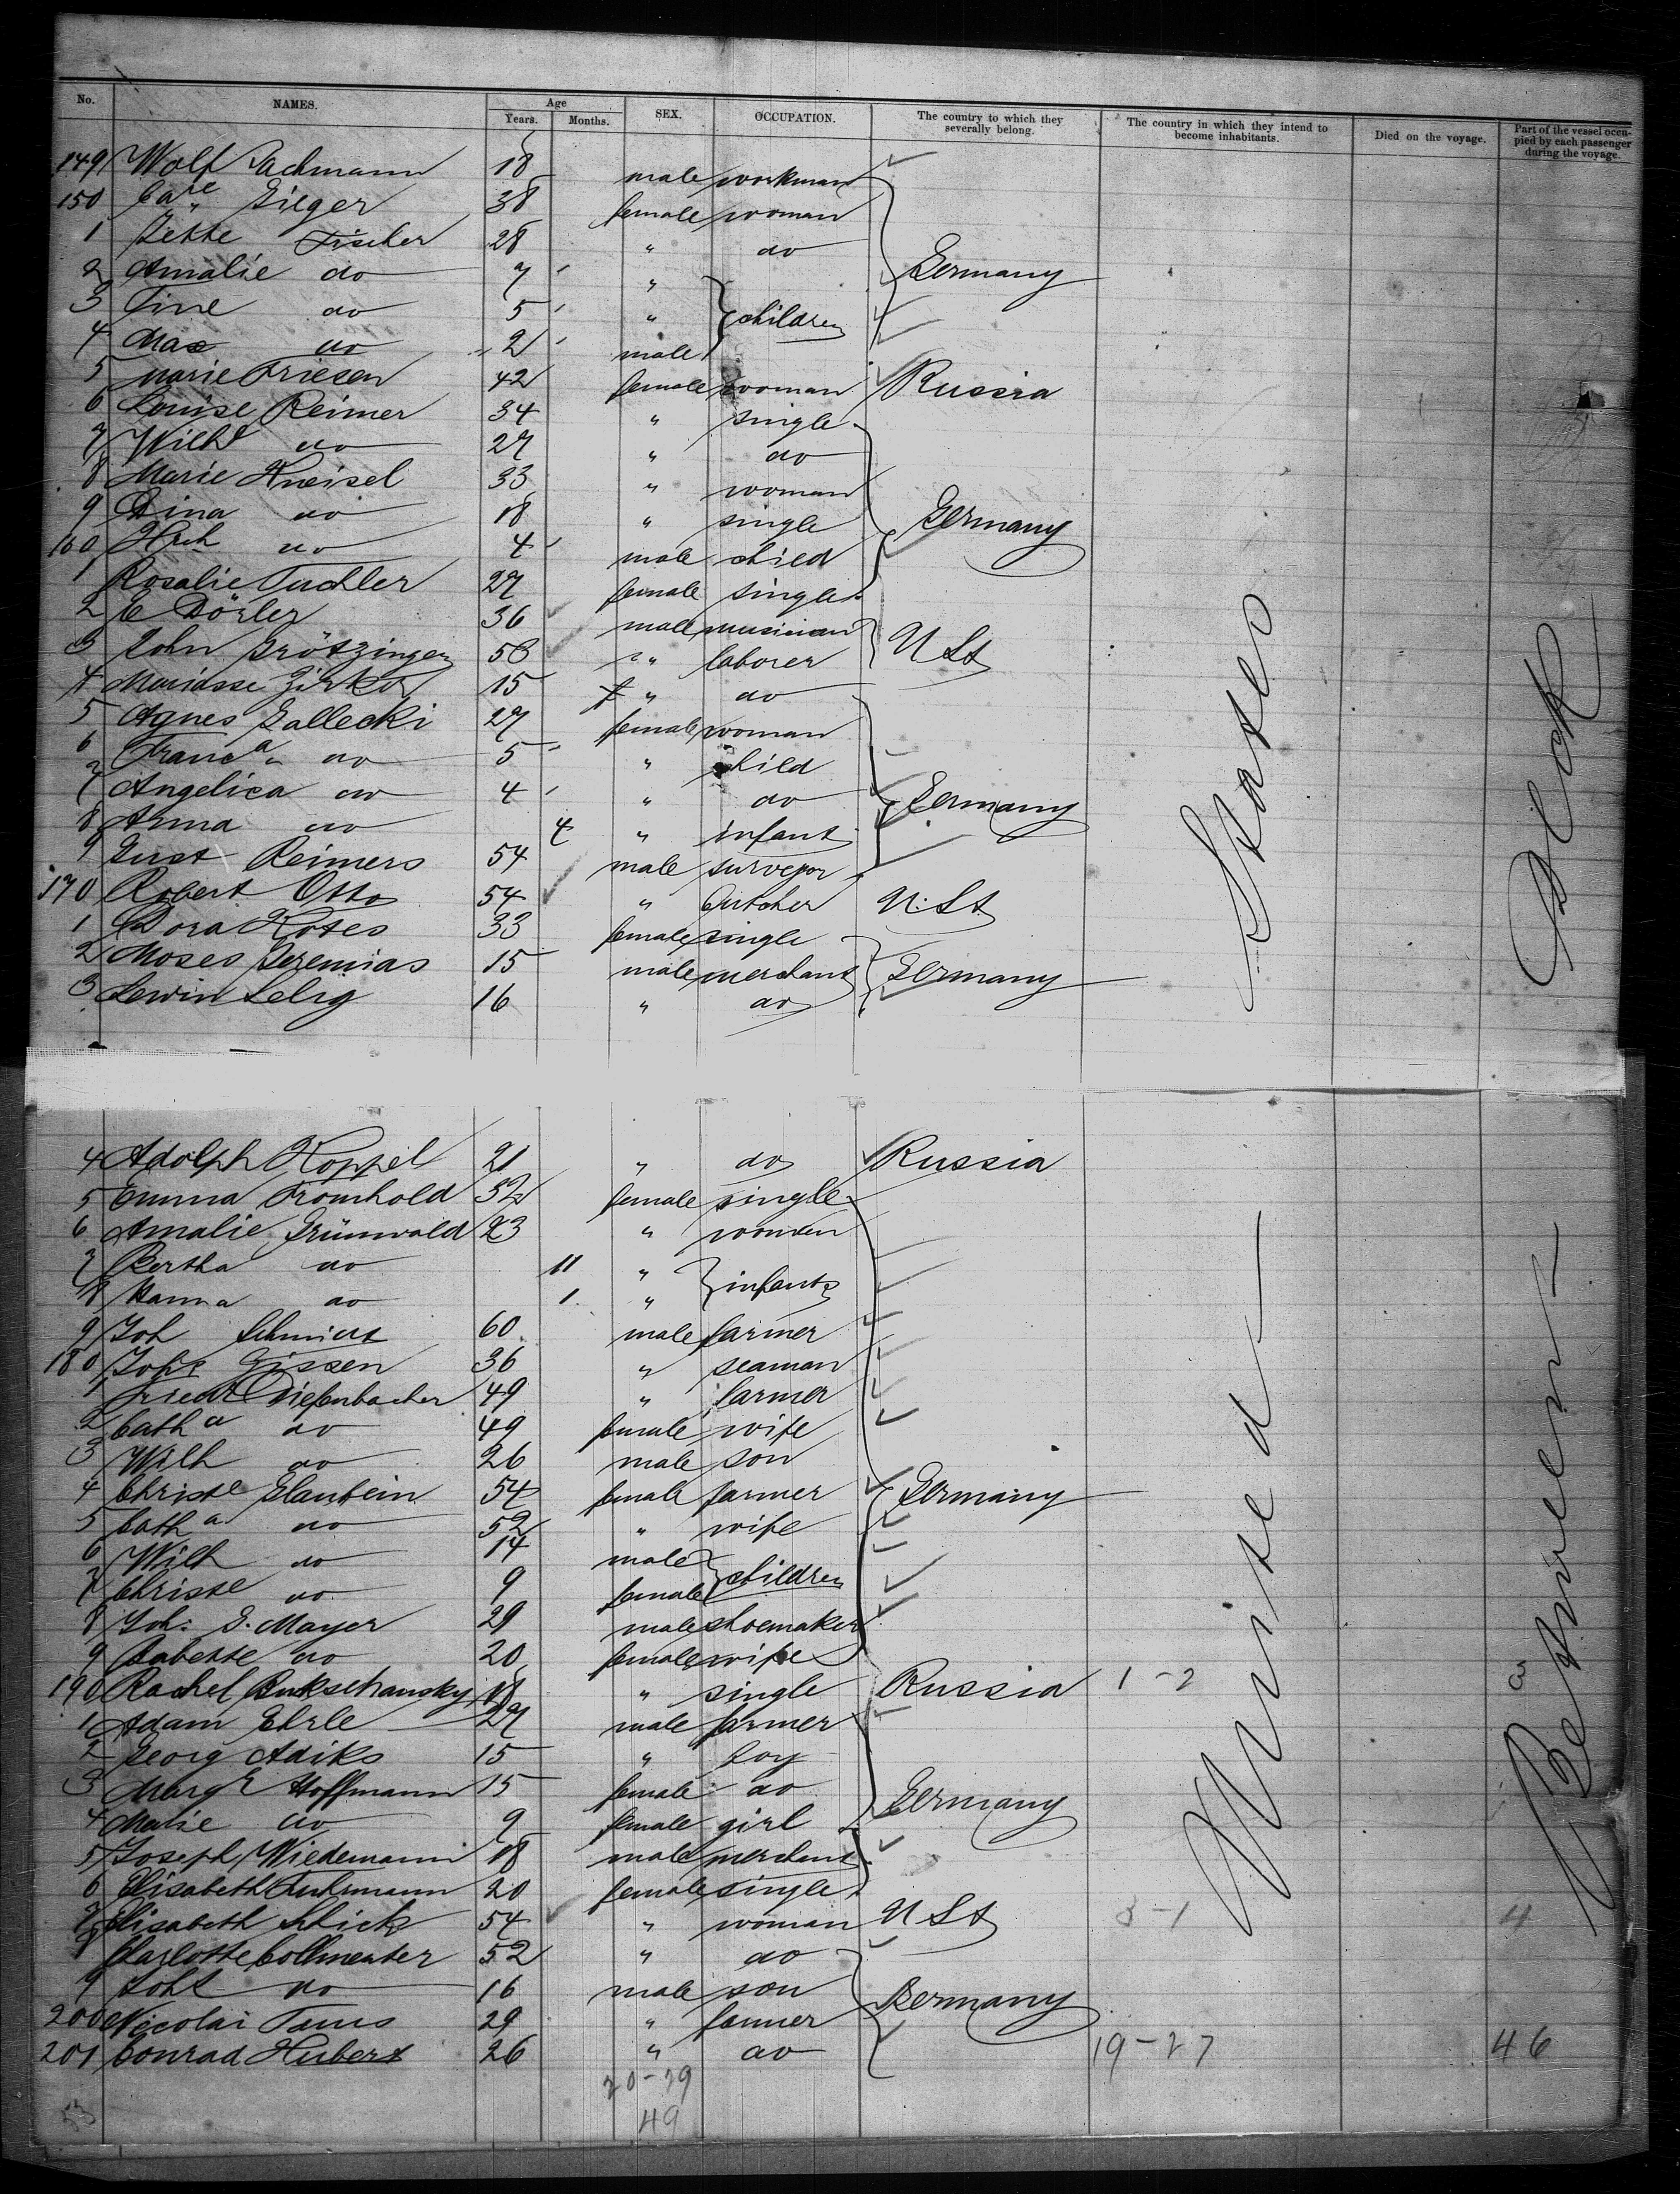 No. NAMES. Age Years. Months. SEX. OCCUPATION. The country to which they severally belong. The country in which they intend to become inhabitants. Died on the voyage. Part of the vessel occupied by each passenger during the voyage.
149 Wolf Lachmann 18 male workman
150 Care Sieger 38 female woman
1 Jette Fischer 28 " do
2 Amalie do 7 " Germany
3 Tine do 5 " children
4 Max do 2 male
5 Marie Friesen 42 female woman Russia
6 Louise Reimer 34 " single
7 Wilhe do 27 " do
8 Marie Kneisel 33 " woman
9 Dina do 18 " single Germany
160 Hch do 4 male child
1 Rosalie Tuchler 27 female single
2 C Dörler 36 male musician
3 John Grötzinger 58 " laborer U St
4 15 f " do
5 Agnes Gallecki 27 female woman
6 Franca do 5 " child
7 Angelica do 4 " do Germany
8 Anna do 4 " infant
9 Gust Reimers 54 male surveyor
170 Robert Otto 54 " butcher U. St
1 Dora Kotes 33 female single
2 Moses Jeremias 15 male merchant Germany
3 Lewin Selig 16 " do
4 Adolph Koppel 21 " do Russia
5 Emma Fromhold 32 female single
6 Amalie Grünwald 23 " women
7 Bertha do 11 " infants
8 Hanna do 1 "
9 Joh Schmidt 60 male farmer
180 Johs Gissen 36 " seaman
1 Friedr Diefenbacher 49 " farmer
2 Catha do 49 female wife
3 Wilh do 26 male son
4 Christe Glanbein 54 female farmer Germany
5 Catha do 52 " wife
6 Wilh do 14 male children
7 Christe do 9 female
8 Joh. G. Mayer 29 male shoemaker
9 Babette do 20 female wife
190 Rachel Bukschansky 18 " single Russia 1-2
1 Adam Ehrle 27 male farmer
2 Georg Adiks 15 " boy
3 Margt Hoffmann 15 female do Germany
4 Marie do 9 female girl
5 Joseph Wiedemann 18 male merchant
6 Elisabeth Fuhrmann 20 female single
7 Elisabeth Schick 54 " woman U St 3-1 4
8 Charlotte Collmeater 52 " do
9 do 16 male son Germany
200 Nicolai Tams 29 " farmer
201 Conrad Hubert 26 " do 19-27 46
20-29
49
53
United States
Between Deck